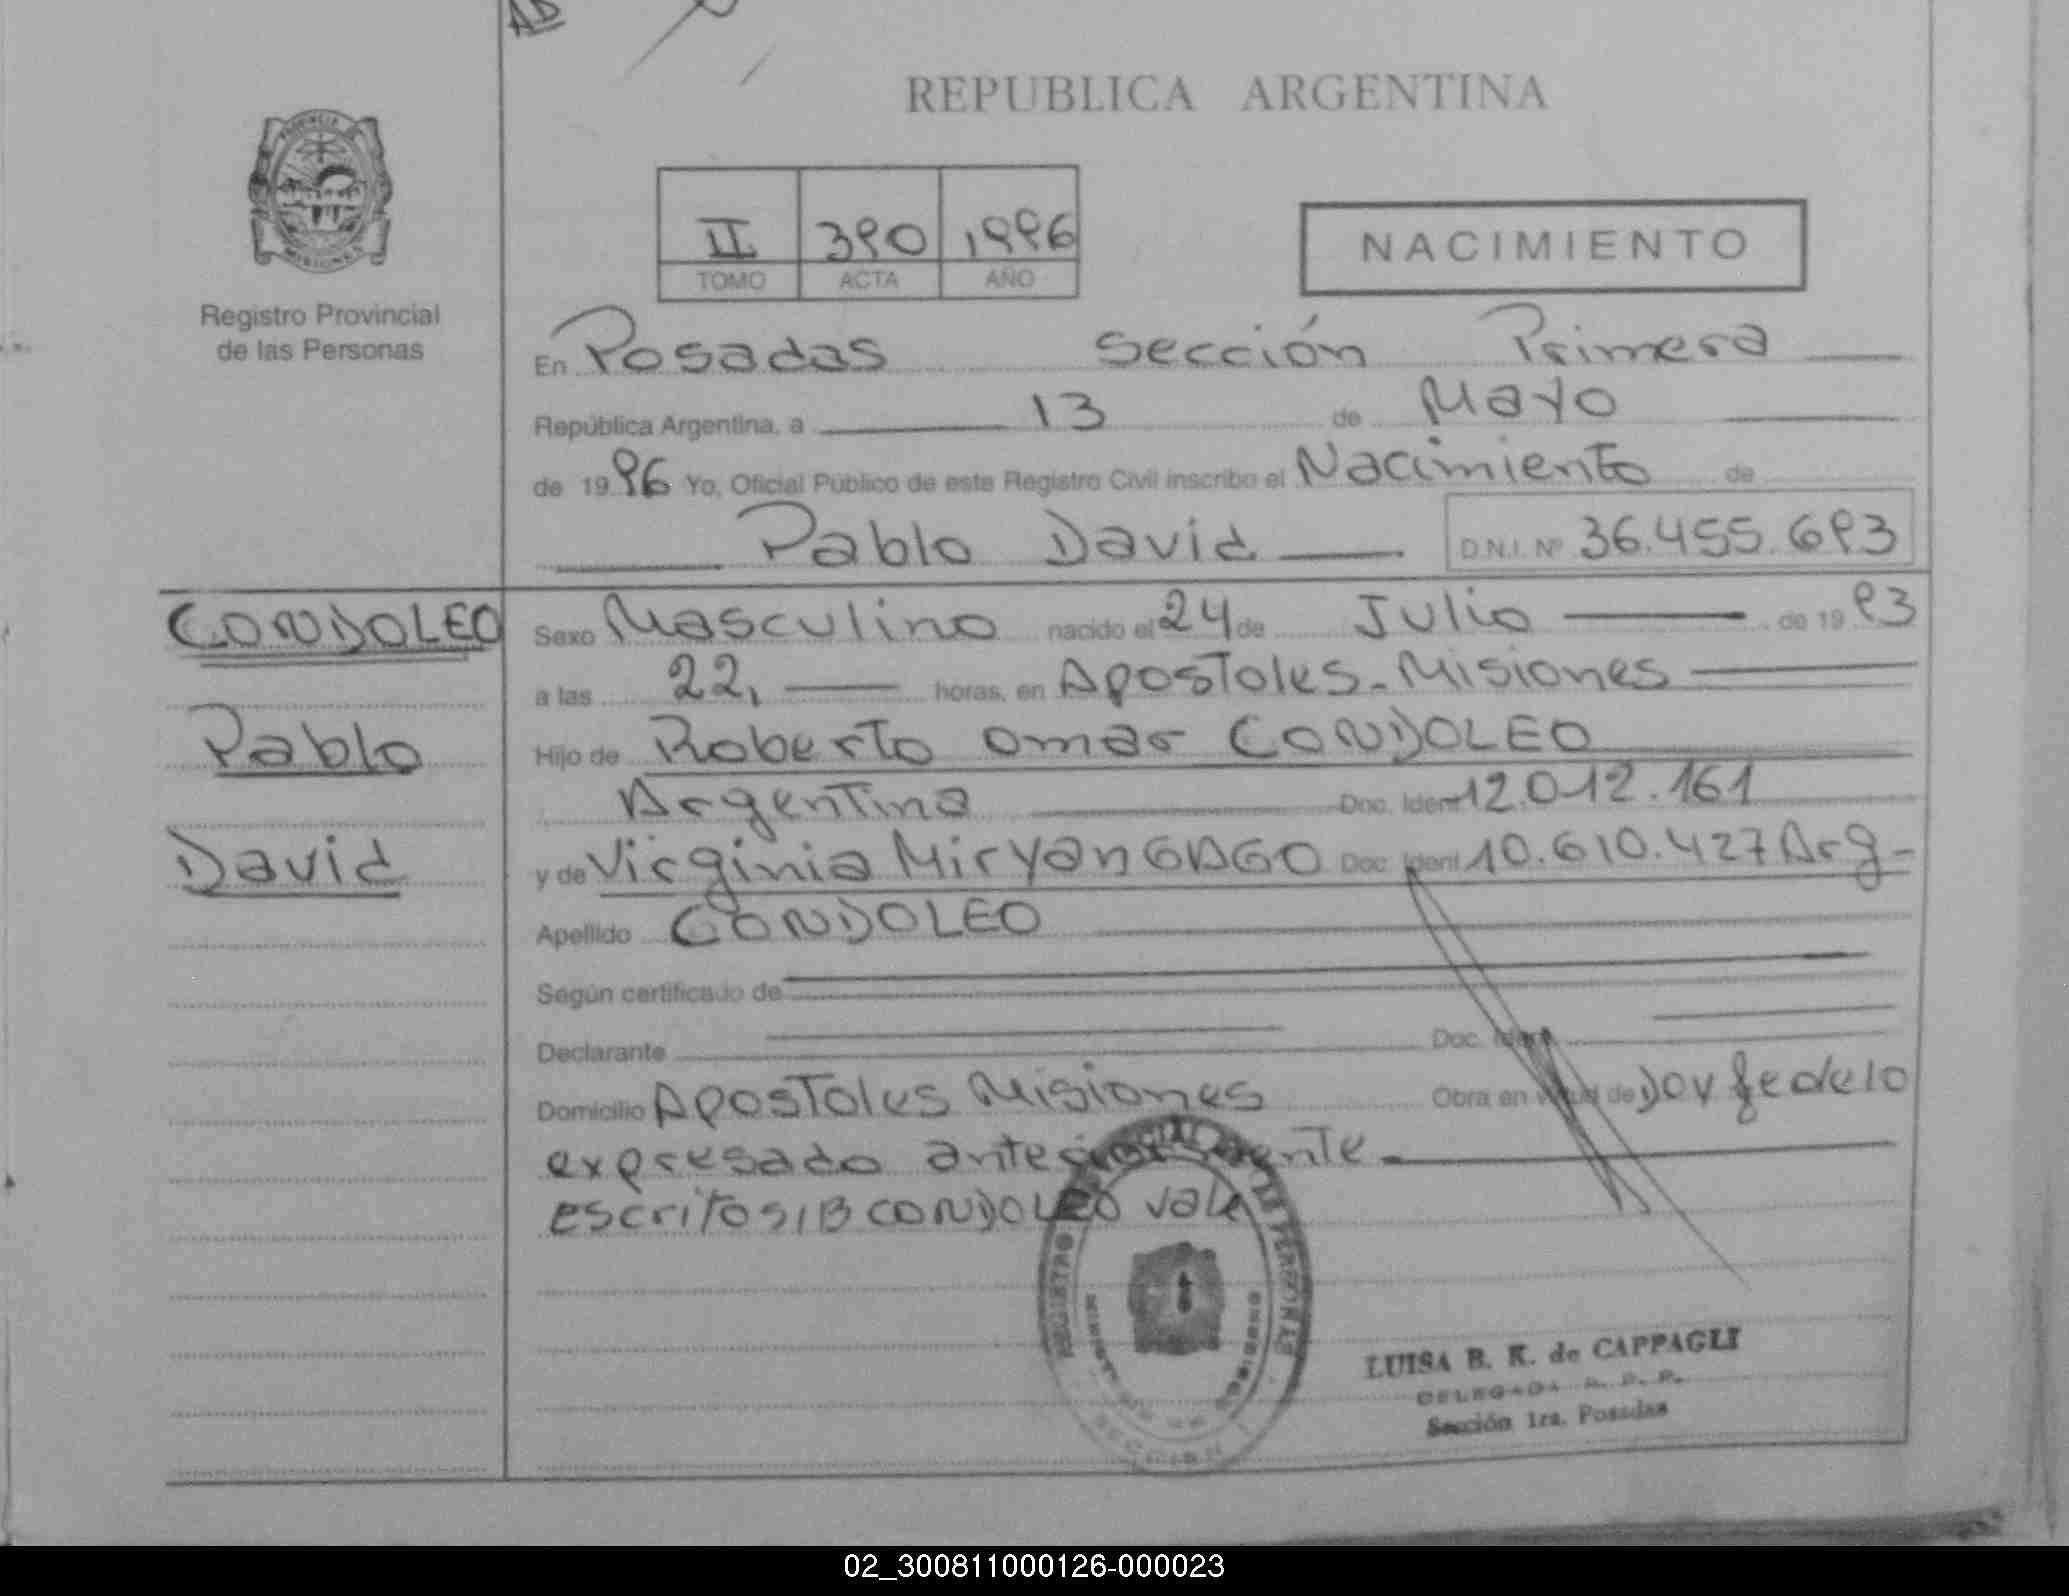 AD
REPUBLICA ARGENTINA
PROVINCIA DE
MISIONES
Registro Provincial
de las Personas
II 390 1996
TOMO ACTA AÑO
NACIMIENTO
En Posadas Sección Primera
República Argentina, a 13 de Mayo
de 19 96 Yo, Oficial Público de este Registro Civil inscribo el Nacimiento de
Pablo David D.N.I. Nº 36.455.693
CONDOLEO
Pablo
David
Sexo Masculino nacido el 24 de Julio de 19 93
a las 22, horas, en Apostoles - Misiones
Hijo de Roberto Omar CONDOLEO
Argentina Doc. Ident 12.012.161
y de Virginia Miryan GAGO Doc. Ident 10.610.427 Arg-
Apellido CONDOLEO
Según certificado de
Declarante Doc. Ident
Domicilio Apostoles Misiones Obra en virtud de Doy fe de lo
expresado anteriormente
escrito S/B CONDOLEO vale
LUISA B. K. de CAPPAGLI
DELEGADA R. P. P.
Sección 1ra. Posadas
02_300811000126-000023